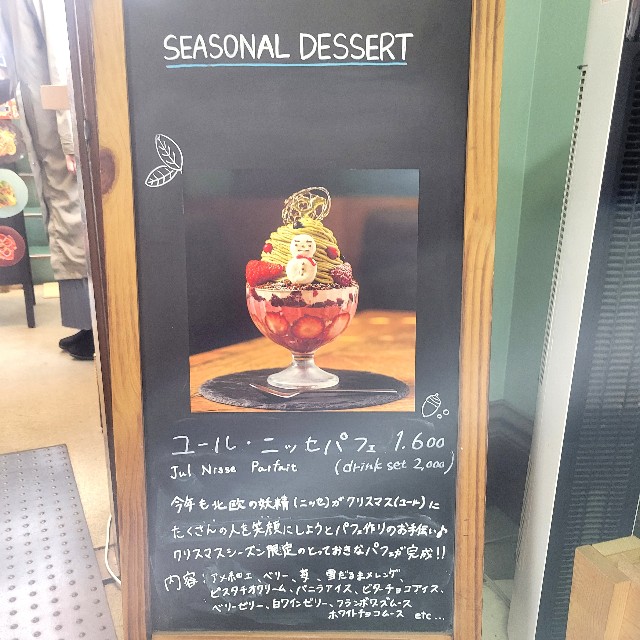 SEASONAL DESSERT
ユール・ニッセパフェ 1.600
Jul Nisse Parfait (drink set 2,000)
今年も北欧の妖精(ニッセ)がクリスマス(ユール)に
たくさんの人を笑顔にしようとパフェ作りのお手伝い♪
クリスマスシーズン限定のとっておきなパフェが完成!!
内容:アメ細工、ベリー、苺、雪だるまメレンゲ、
ピスタチオクリーム、バニラアイス、ビターチョコアイス、
ベリーゼリー、白ワインゼリー、フランボワズムース
ホワイトチョコムース etc...